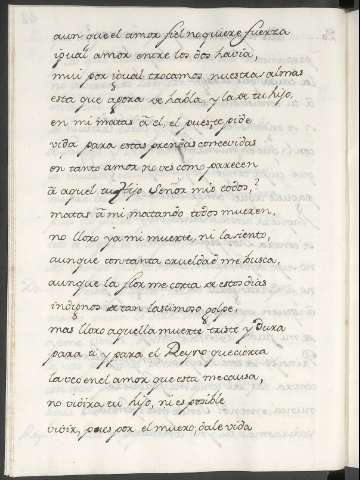 aun que el amor fiel no quiere fuerza
igual amor entre los dos havia,
mui por igual trocamos nuestras almas
esta que agora te habla, y la de tu hijo,
en mi matas à él, el pues te pide
vida para estas prendas concevidas
en tanto amor no ves como parecen
à aquel tu hijo Señor mio todos,?
matas à mi, matando todos mueren,
no lloro ya mi muerte, ni la siento,
aunque con tanta crueldad me busca,
aunque la flor me corta de estos dias
indignos de tan lastimoso golpe,
mas lloro aquella muerte triste y dura
para ti y para el Reyno que cierta
la veo en el amor que esta me causa,
no vivira tu hijo, ni es posible
vivir, pues por el muero, dale vida